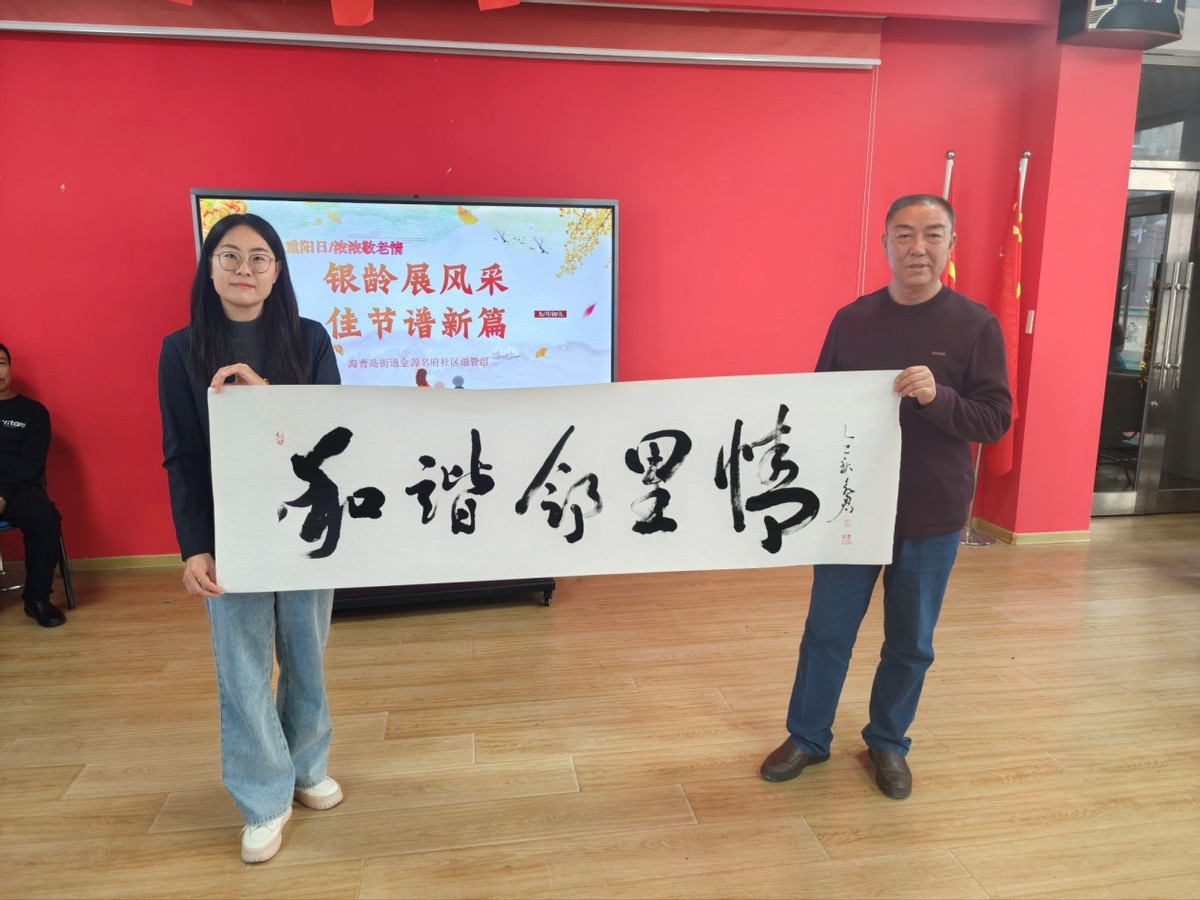 重阳日/浓浓敬老情
银龄展风采
佳节谱新篇
九月初九
海青岛街道金源名府社区退管组
和谐邻里情
乙巳秋